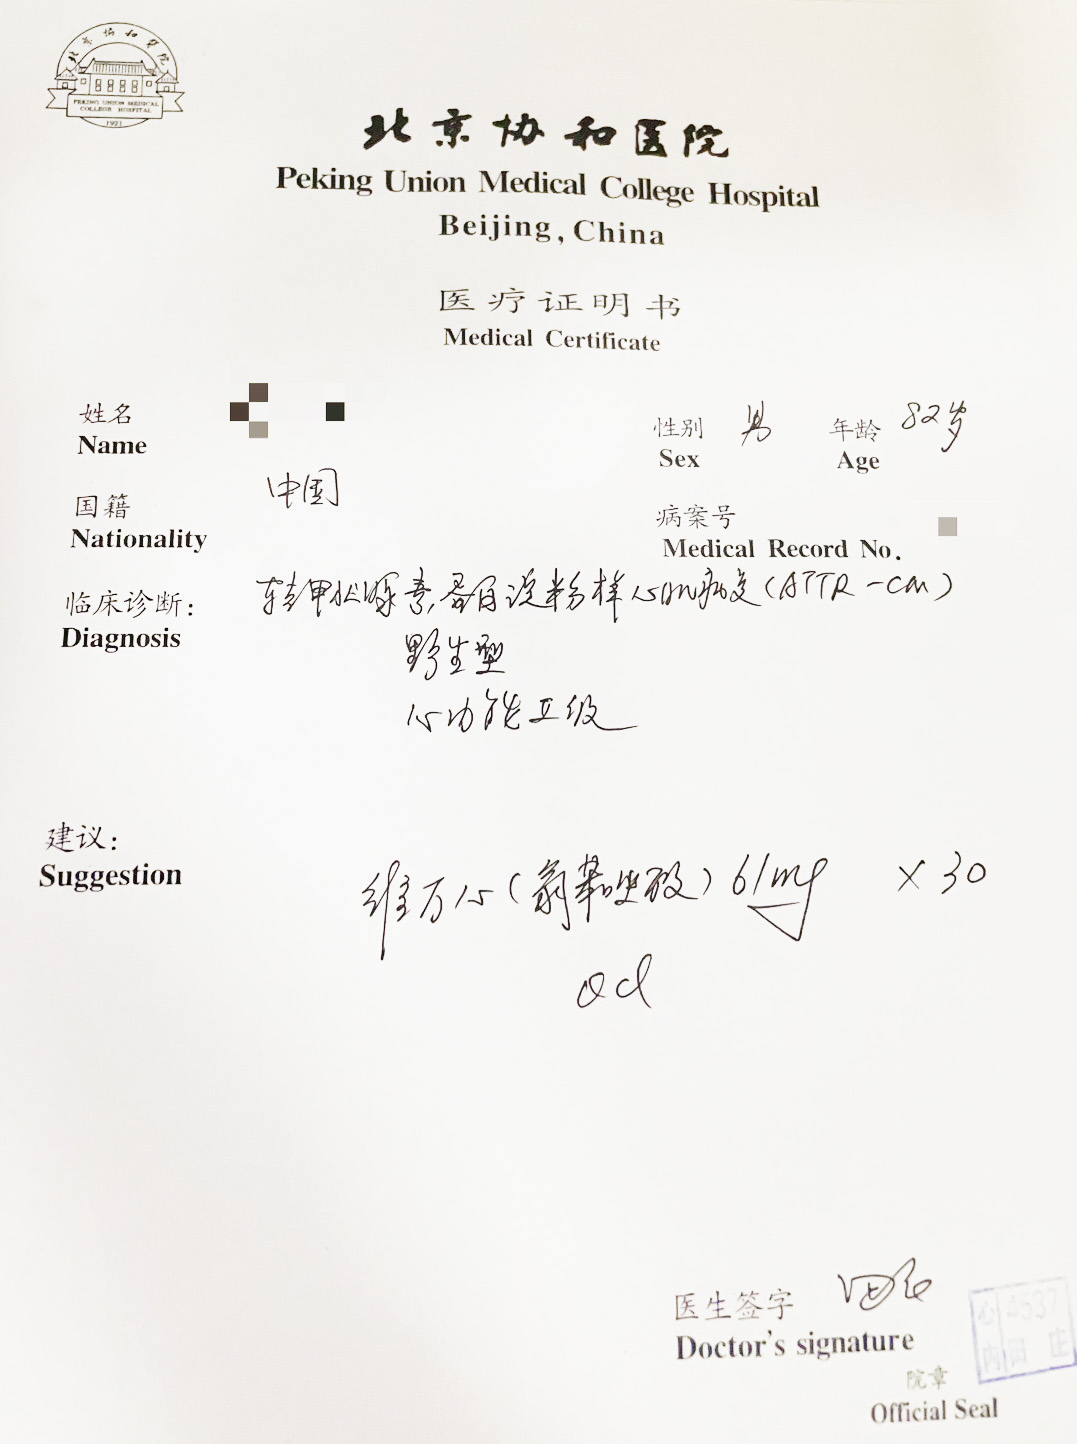 北京协和医院
PEKING UNION MEDICAL
COLLEGE HOSPITAL
1921
北京协和医院
Peking Union Medical College Hospital
Beijing, China
医疗证明书
Medical Certificate
姓名
Name
性别 男 年龄 82岁
Sex Age
国籍 中国
Nationality
病案号
Medical Record No.
临床诊断: 转甲状腺素蛋白淀粉样心肌病变(ATTR-CM)
Diagnosis
野生型
心功能II级
建议:
Suggestion
维万心(氯苯唑酸) 61mg × 30
qd
医生签字
Doctor's signature
心内 4537
田庄
院章
Official Seal